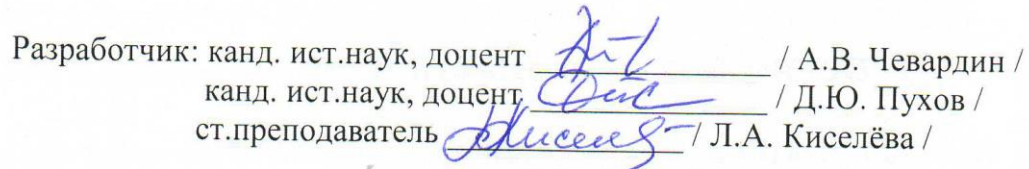 Разработчик: канд. ист.наук, доцент / А.В. Чевардин /
канд. ист.наук, доцент / Д.Ю. Пухов /
ст.преподаватель / Л.А. Киселёва /